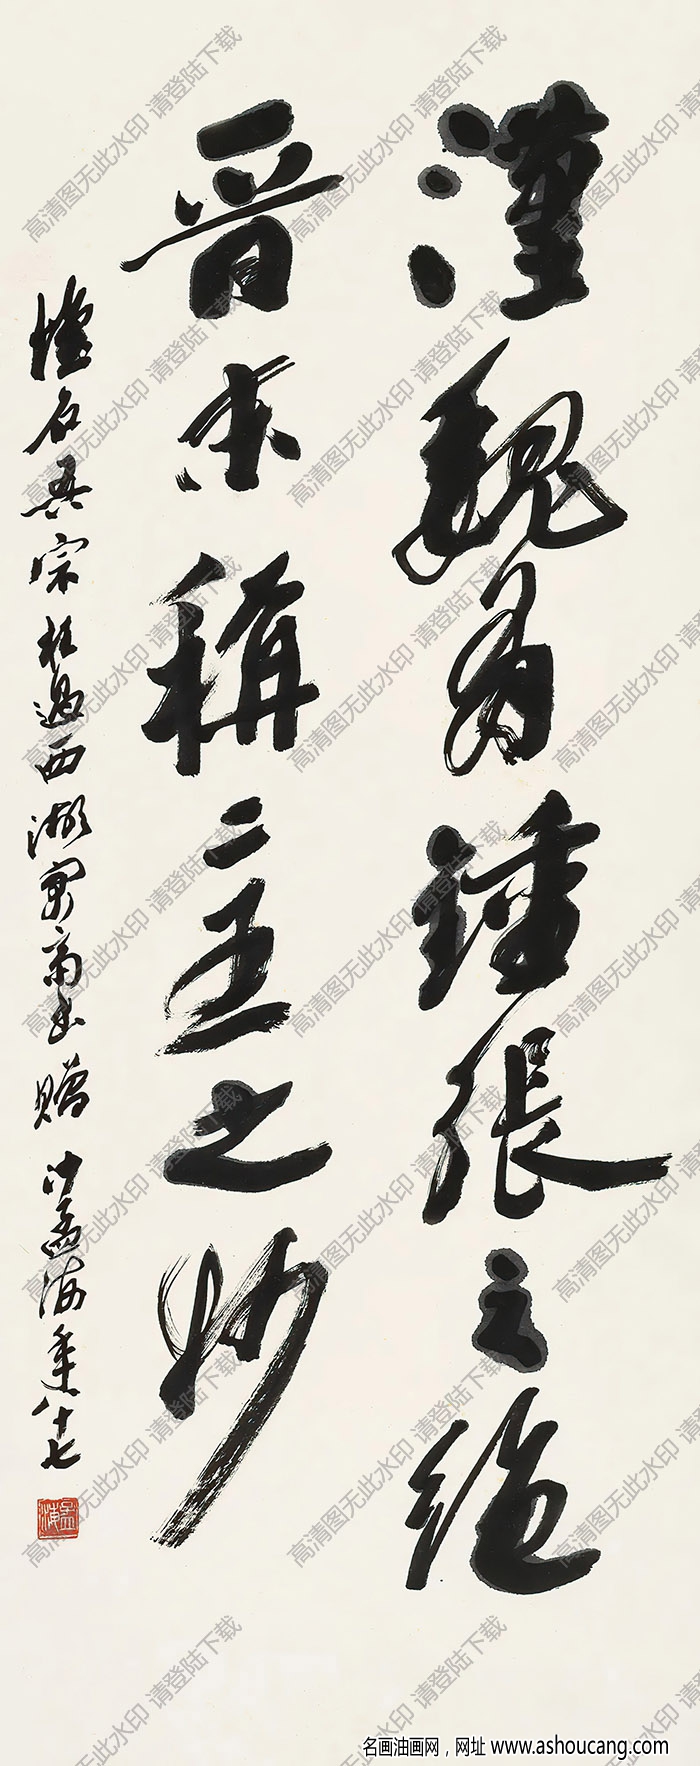 漢魏有鍾張之絕
晉末稱二王之妙
石吾宗枉過西湖寓齋書贈 沙孟海年八十七
孟海
高清图无此水印 请登陆下载
名画油画网，网址 www.ashoucang.com